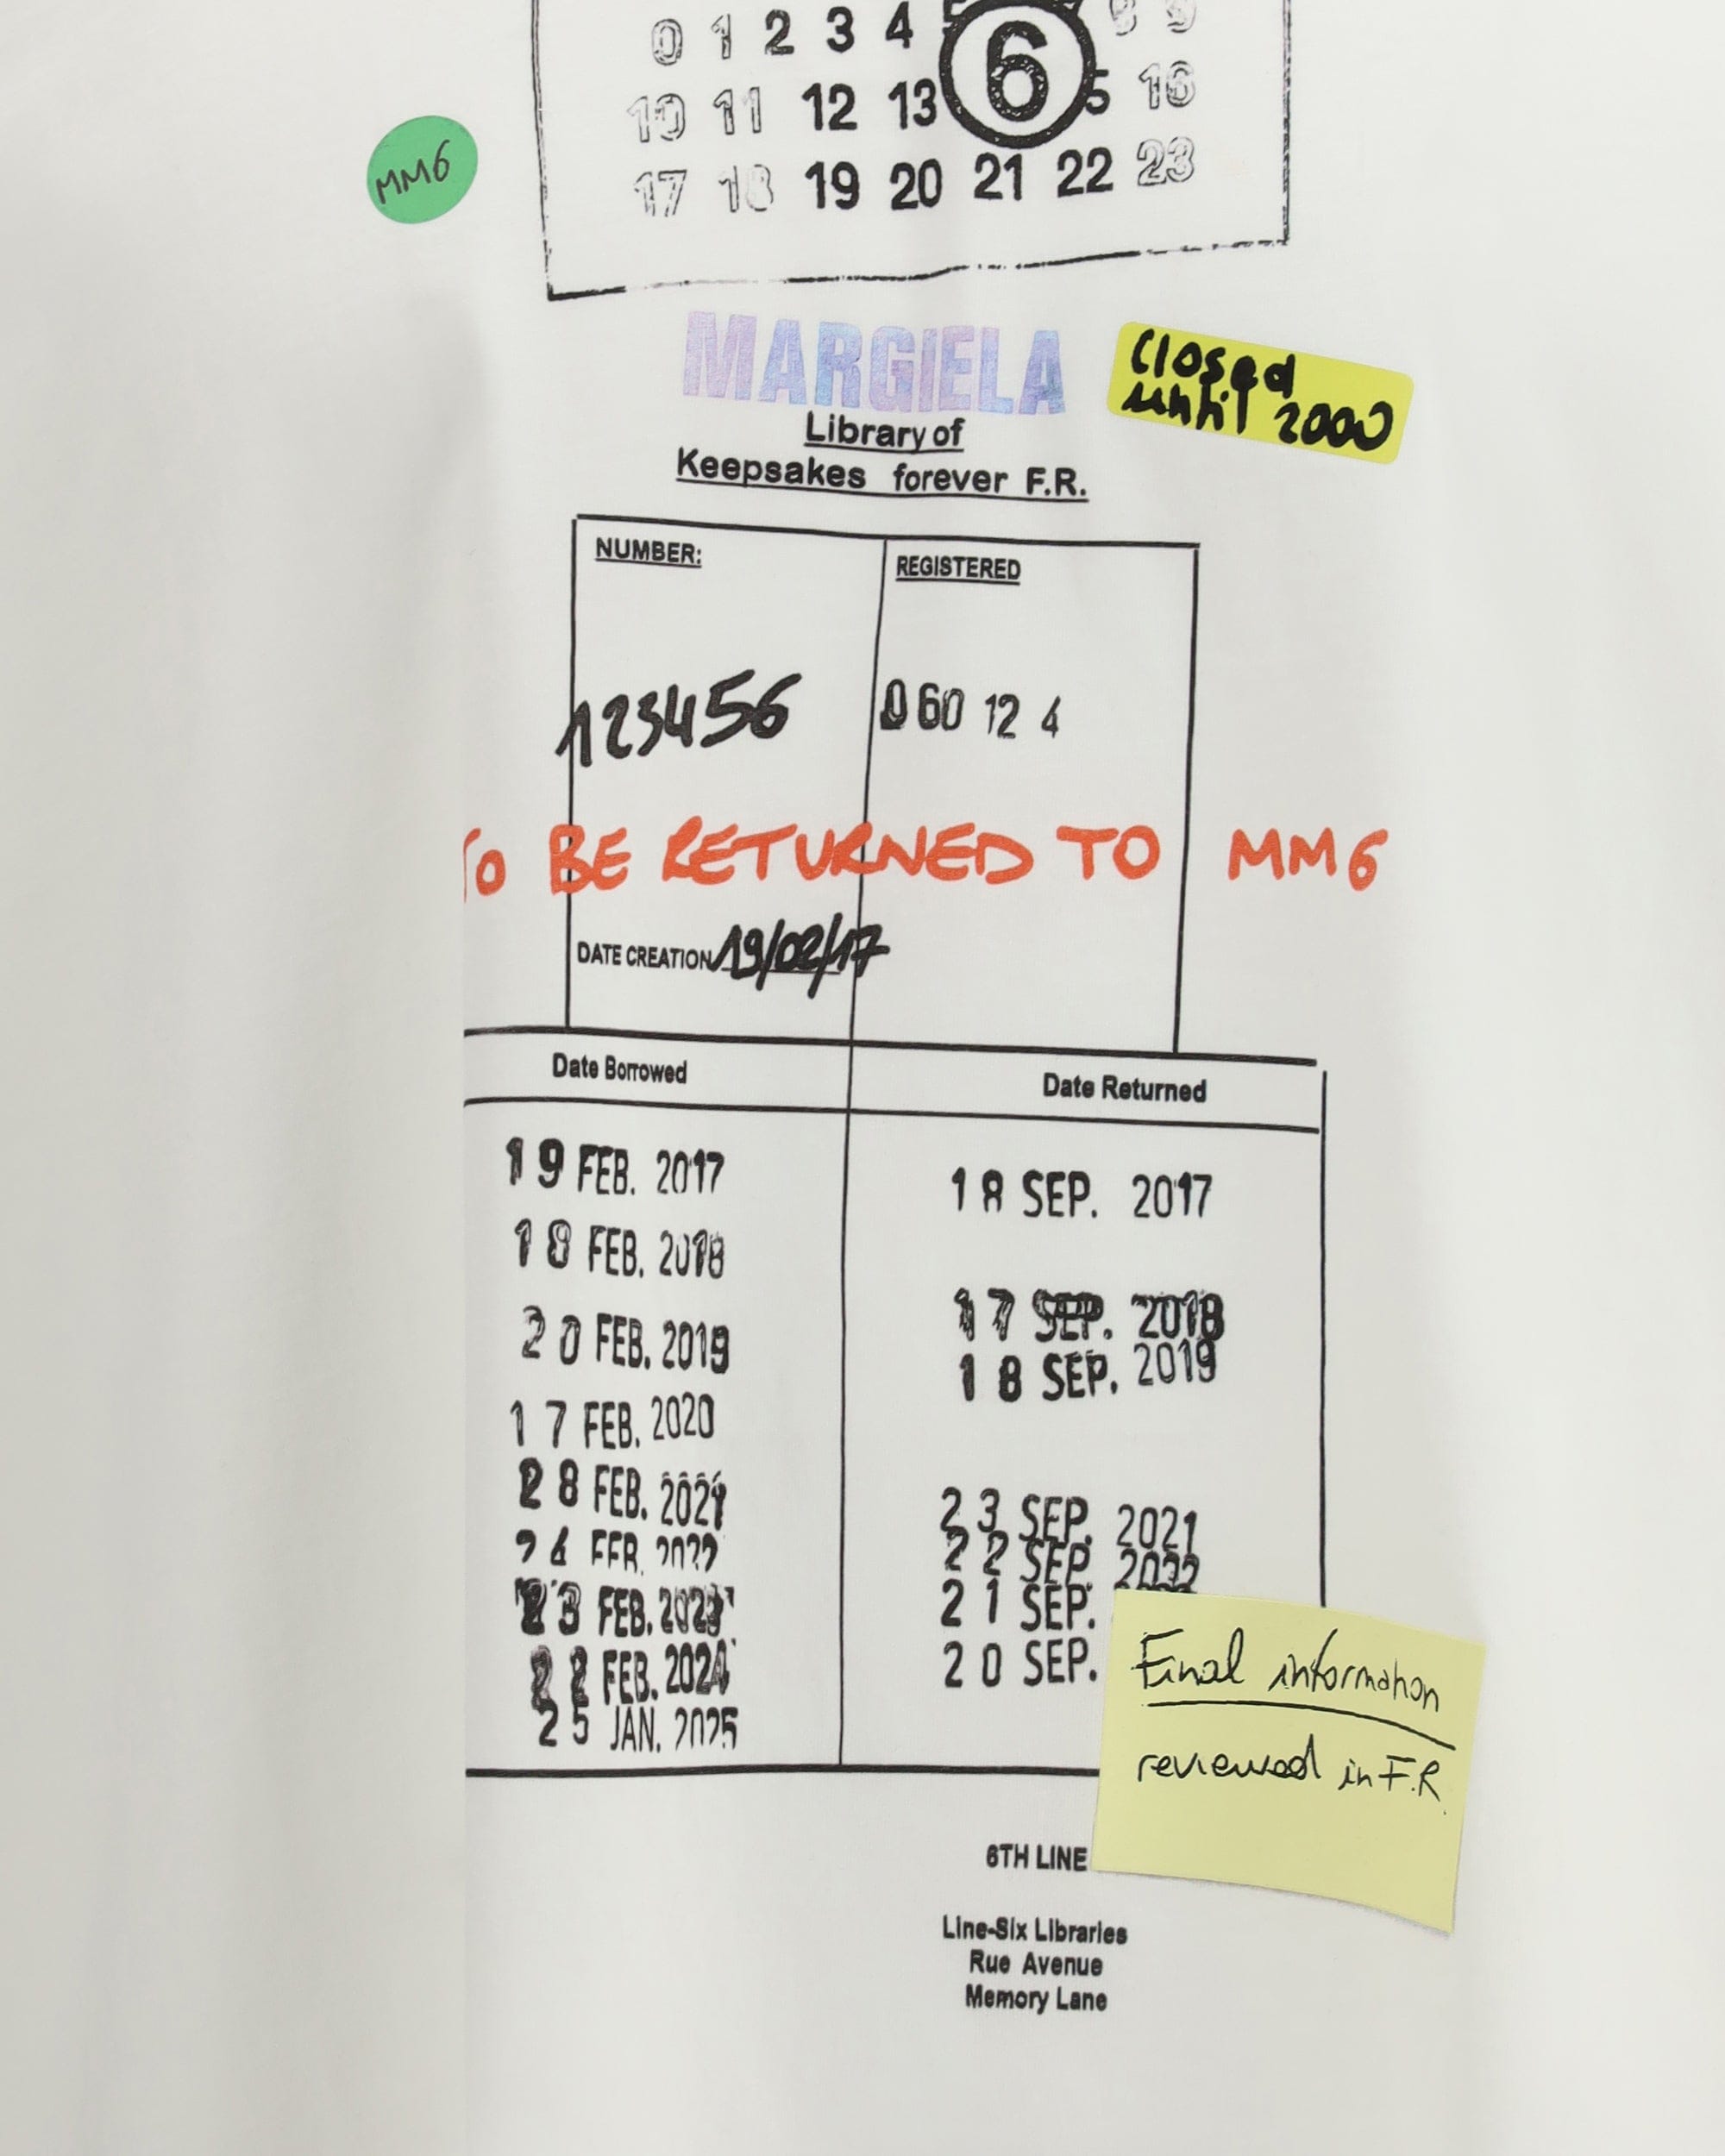 0 1 2 3 4 8 9
6
10 11 12 13 5 16
17 18 19 20 21 22 23
MM6
MARGIELA
Closed
until 2000
Library of
Keepsakes forever F.R.
NUMBER:
REGISTERED
123456
060 12 4
TO BE RETURNED TO MM6
DATE CREATION 19/02/17
Date Borrowed
Date Returned
19 FEB. 2017
18 SEP. 2017
18 FEB. 2018
17 SEP. 2018
20 FEB. 2019
18 SEP. 2019
17 FEB. 2020
28 FEB. 2021
23 SEP. 2021
24 FEB. 2022
22 SEP. 2022
23 FEB. 2023
21 SEP.
22 FEB. 2024
20 SEP.
25 JAN. 2025
Final information
reviewed in F.R.
6TH LINE
Line-Six Libraries
Rue Avenue
Memory Lane